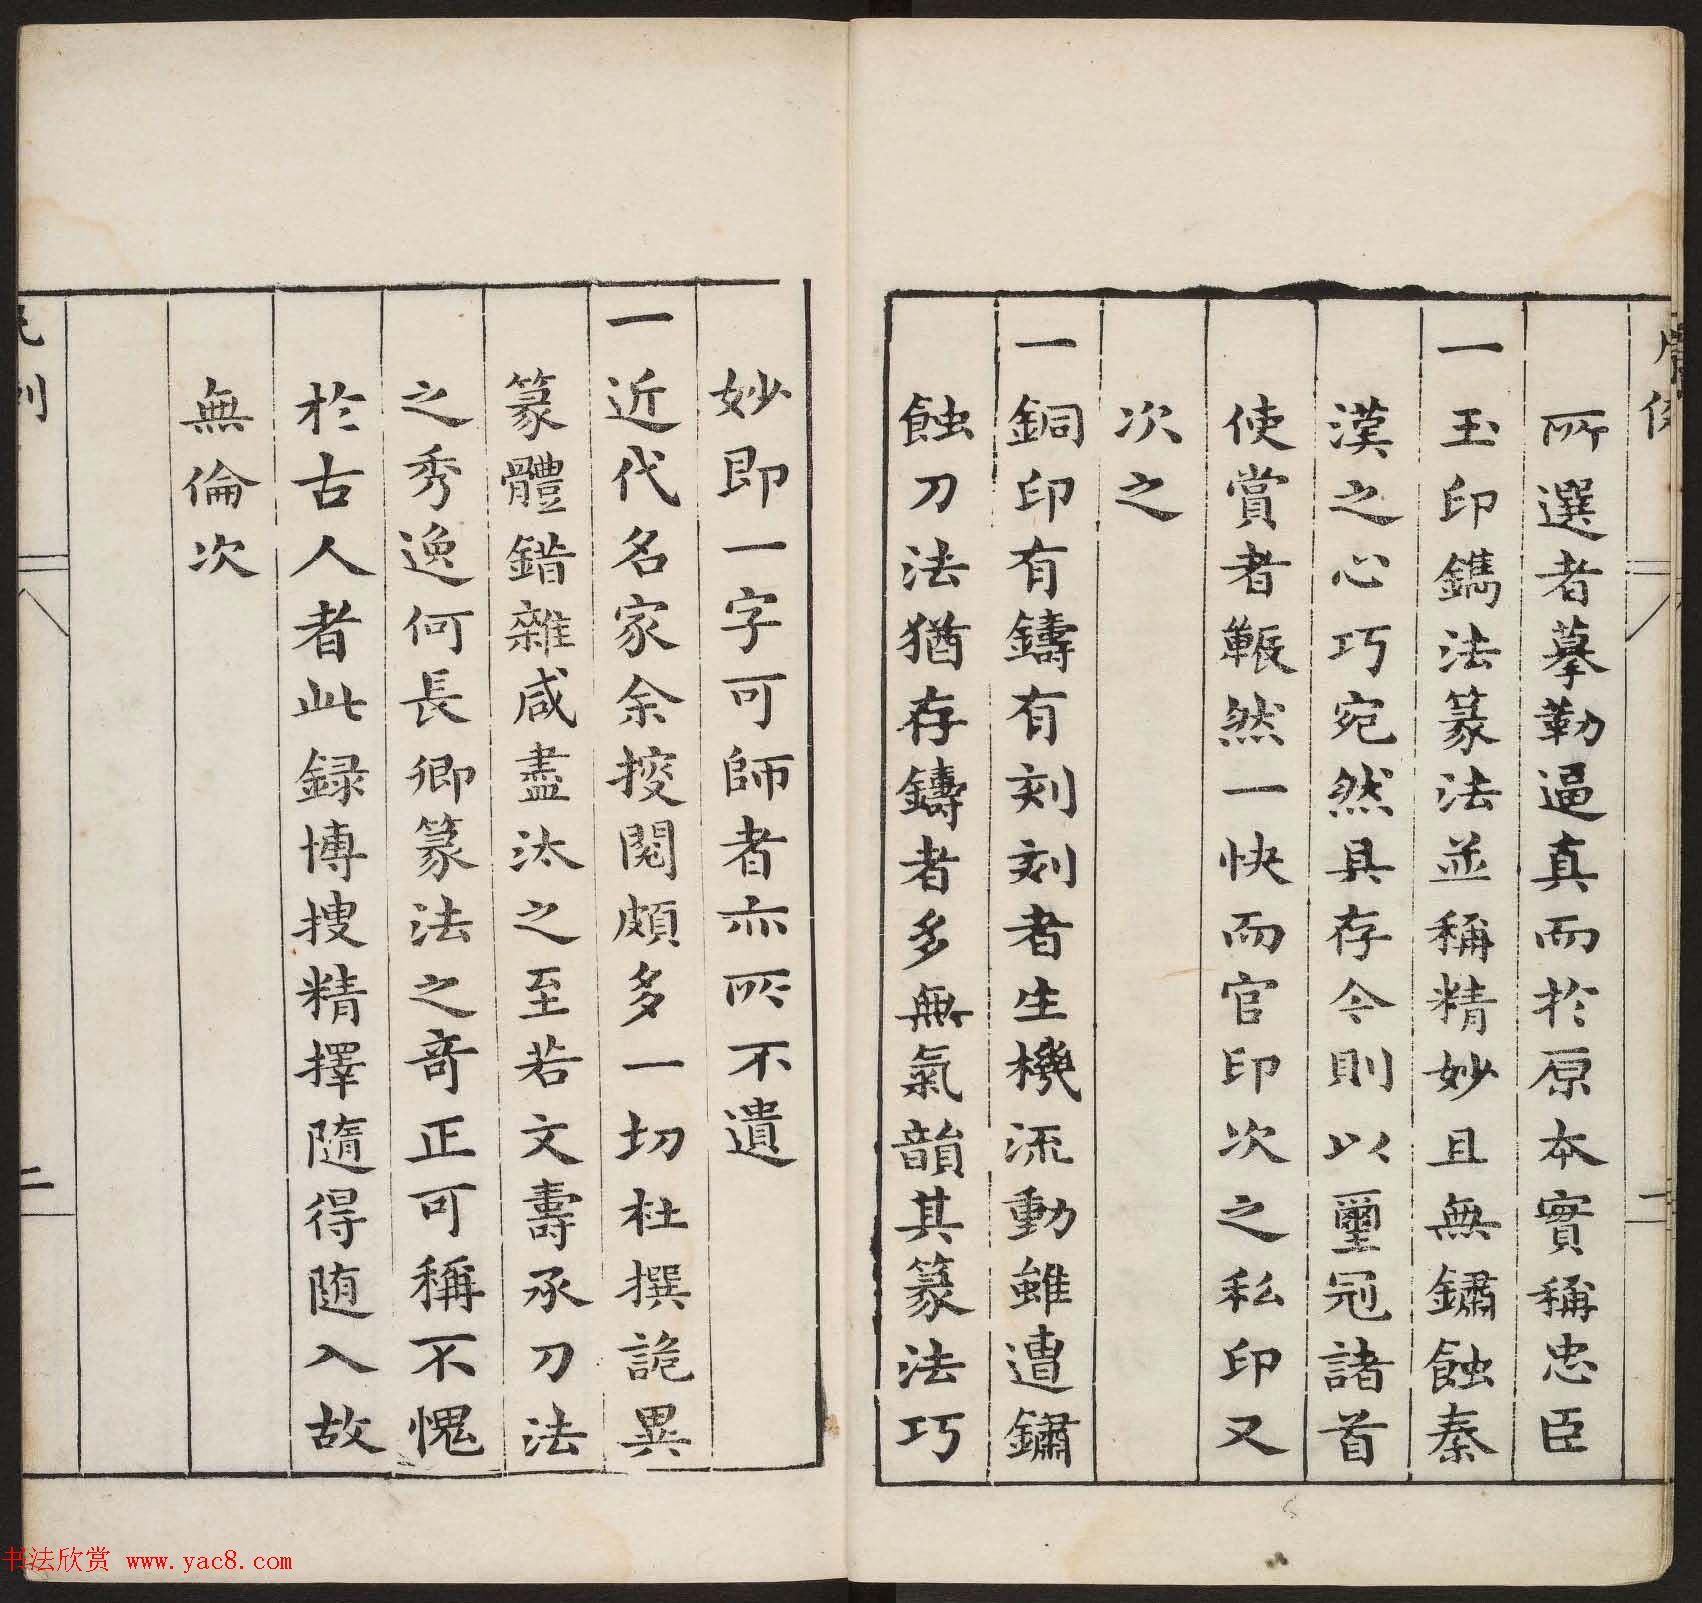 所選者摹勒逼真而於原本實稱忠臣
一玉印鐫法篆法並稱精妙且無鏽蝕秦
漢之心巧宛然具存今則以璽冠諸首
使賞者囅然一快而官印次之私印又
次之
一銅印有鑄有刻刻者生機流動雖遭鏽
蝕刀法猶存鑄者多無氣韻其篆法巧
妙即一字可師者亦所不遺
一近代名家余搜閱頗多一切杜撰詭異
篆體錯雜咸盡汰之至若文壽承刀法
之秀逸何長卿篆法之奇正可稱不愧
於古人者此録博搜精擇隨得随入故
無倫次
二
书法欣赏 www.yac8.com